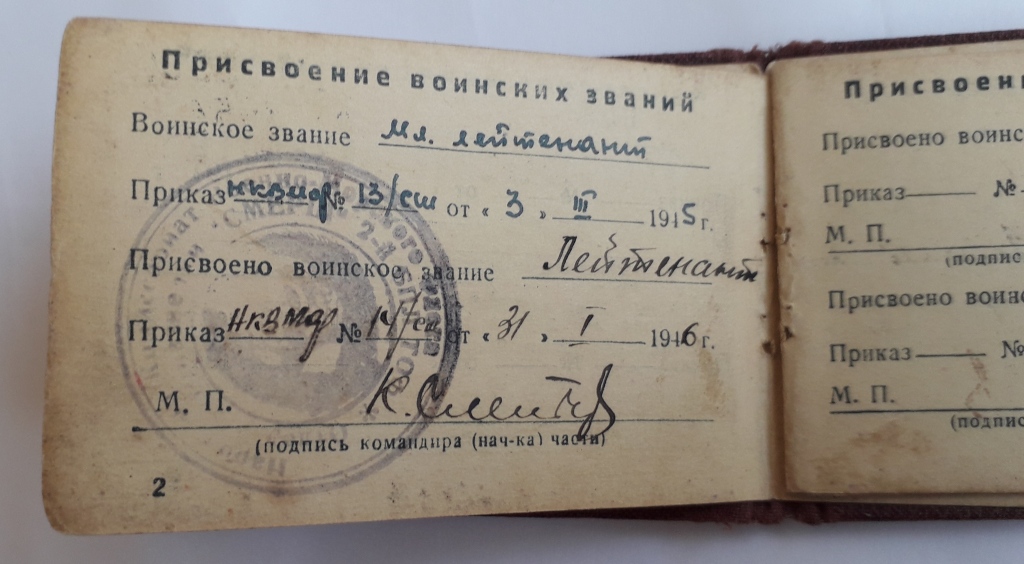 Присвоение воинских званий
Воинское звание мл. лейтенант
Приказ НКВМФ № 13/сш от « 3 » III 1945 г.
Присвоено воинское звание Лейтенант
Приказ НКВМФ № от « 31 » I 1946 г.
М. П.
(подпись командира (нач-ка) части)
2
СМЕРШ
2-й
Присвоени
Присвоено воинс
Приказ №
М. П.
(подпис
Присвоено воинс
Приказ №
М. П.
(подпи